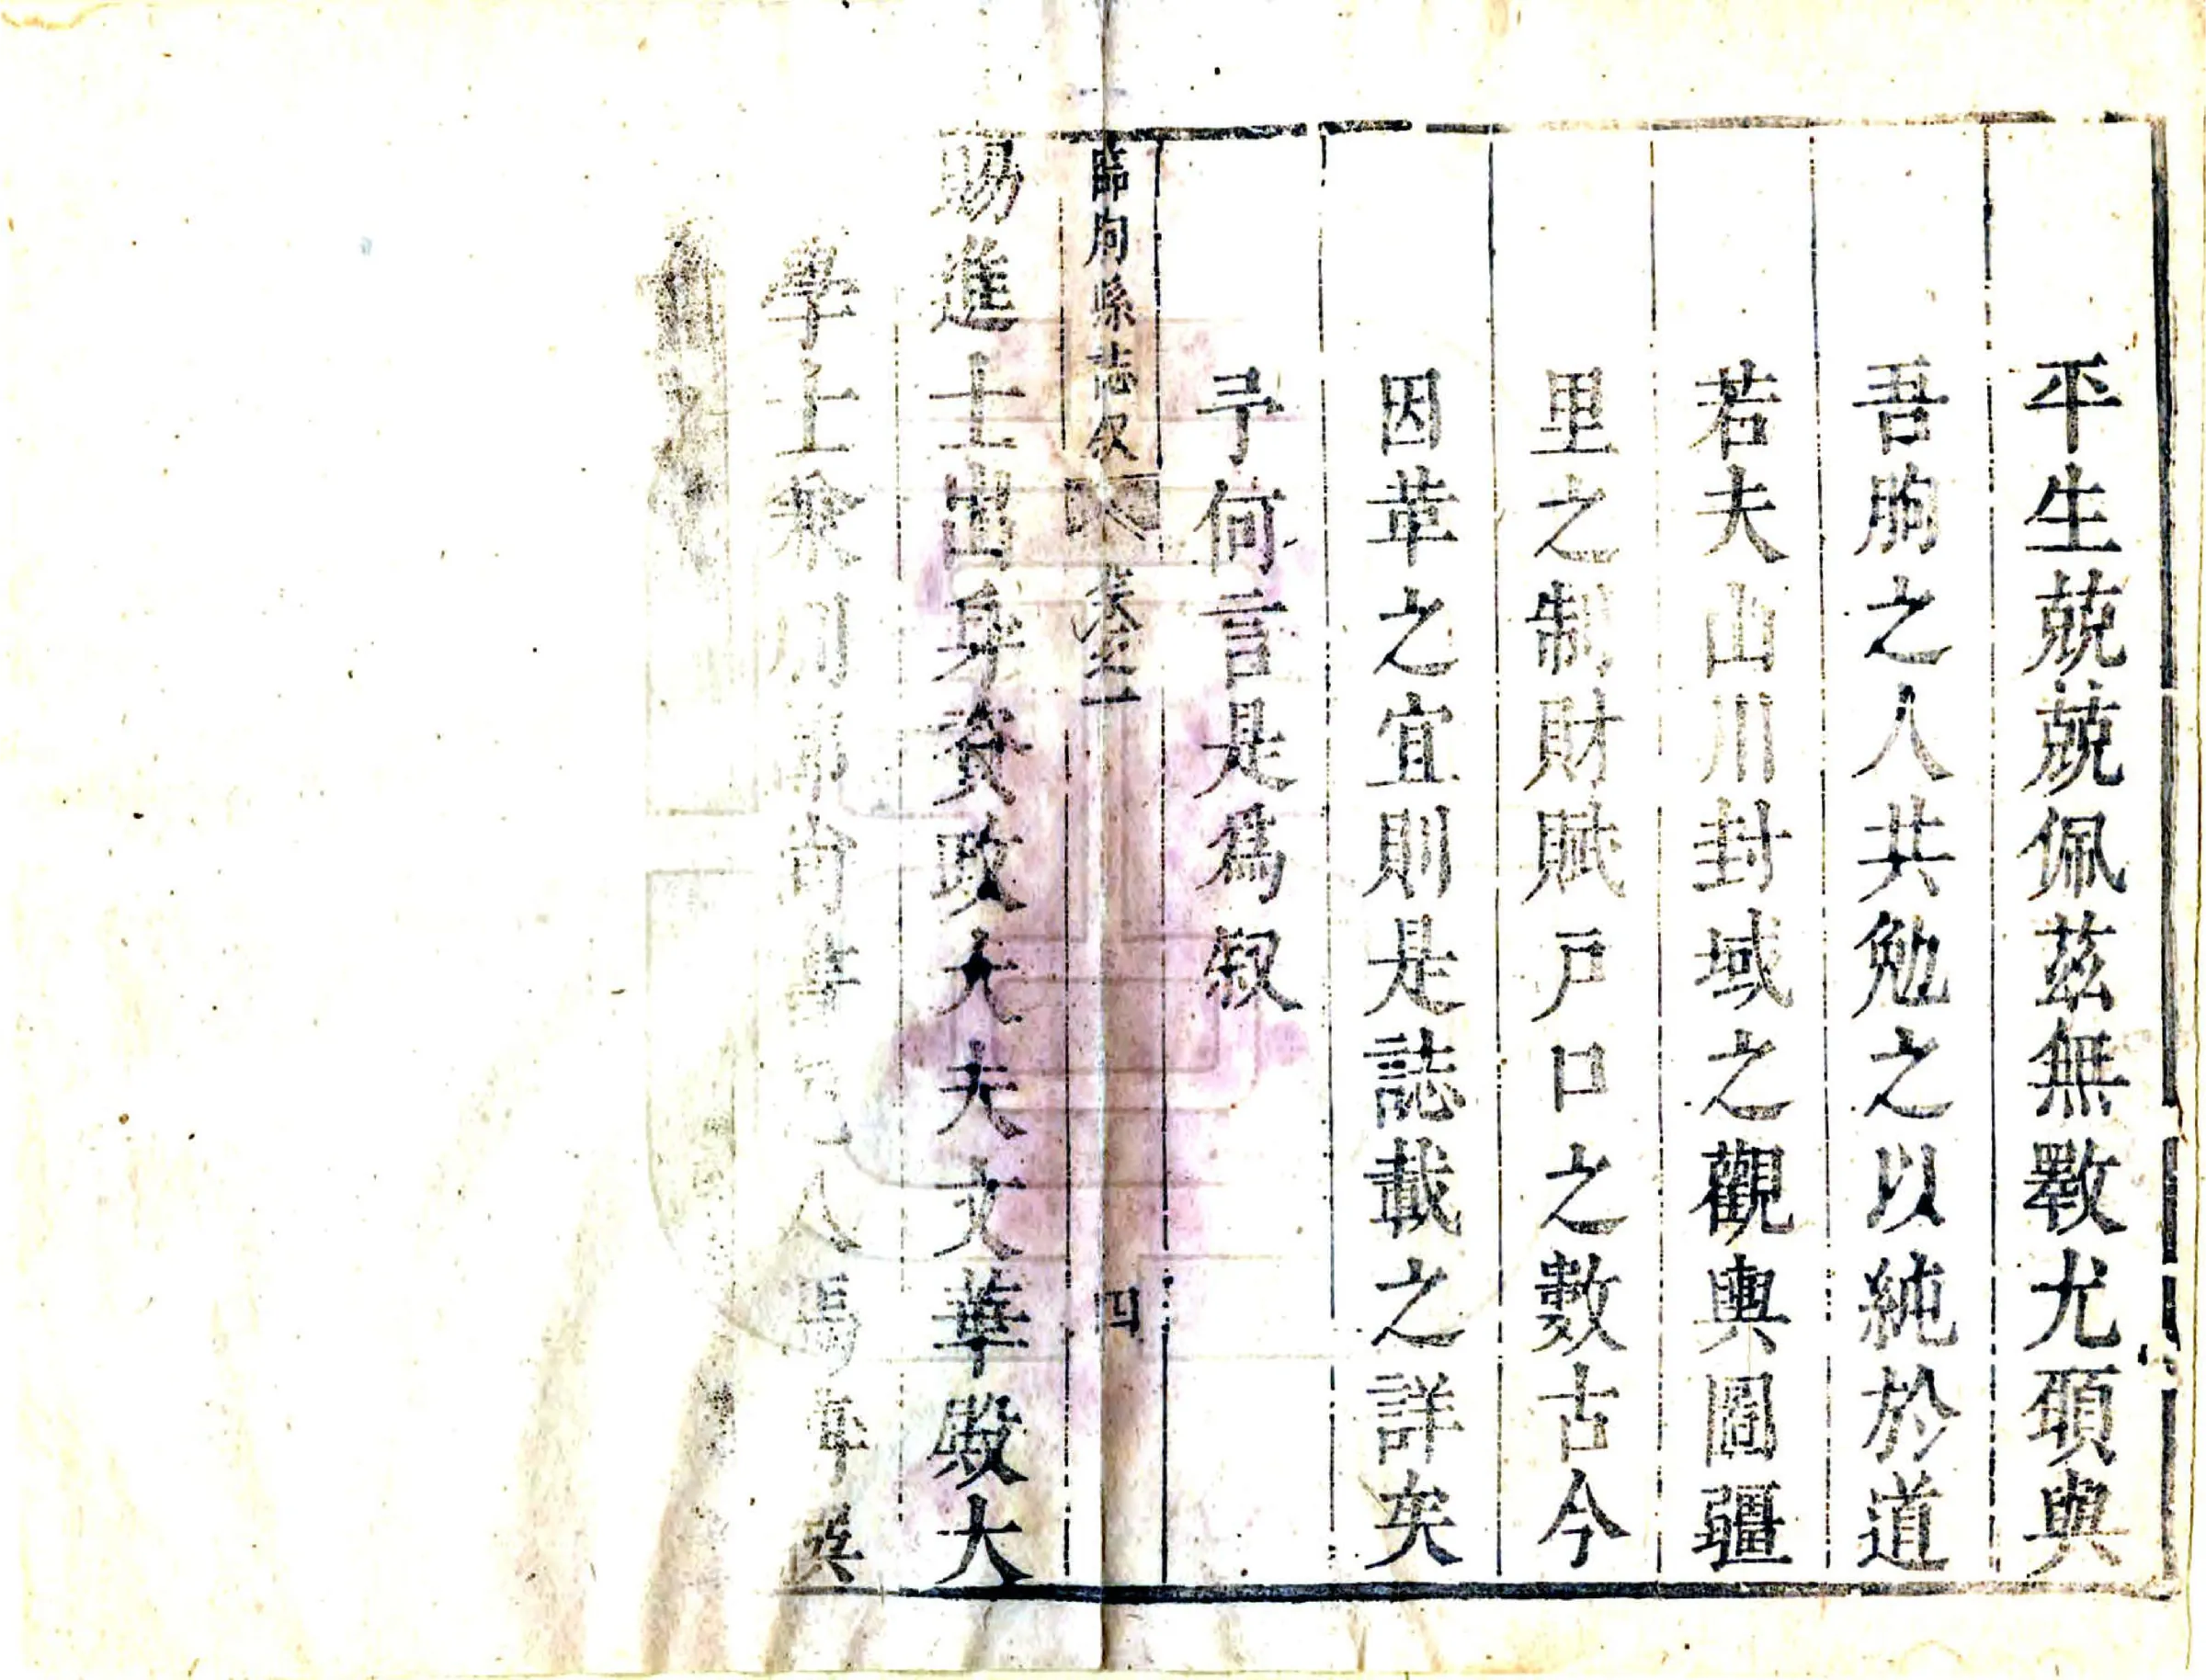 平生兢兢佩茲無斁尤頋與
吾朐之人共勉之以純於道
若夫山川封域之觀輿圖疆
里之制財賦戸口之數古今
因革之宜則是誌載之詳矣
予何言是爲叙
臨朐縣志叙 卷之一 四
賜進士出身資政大夫文華殿大
學士兼刑部尚書 人馮